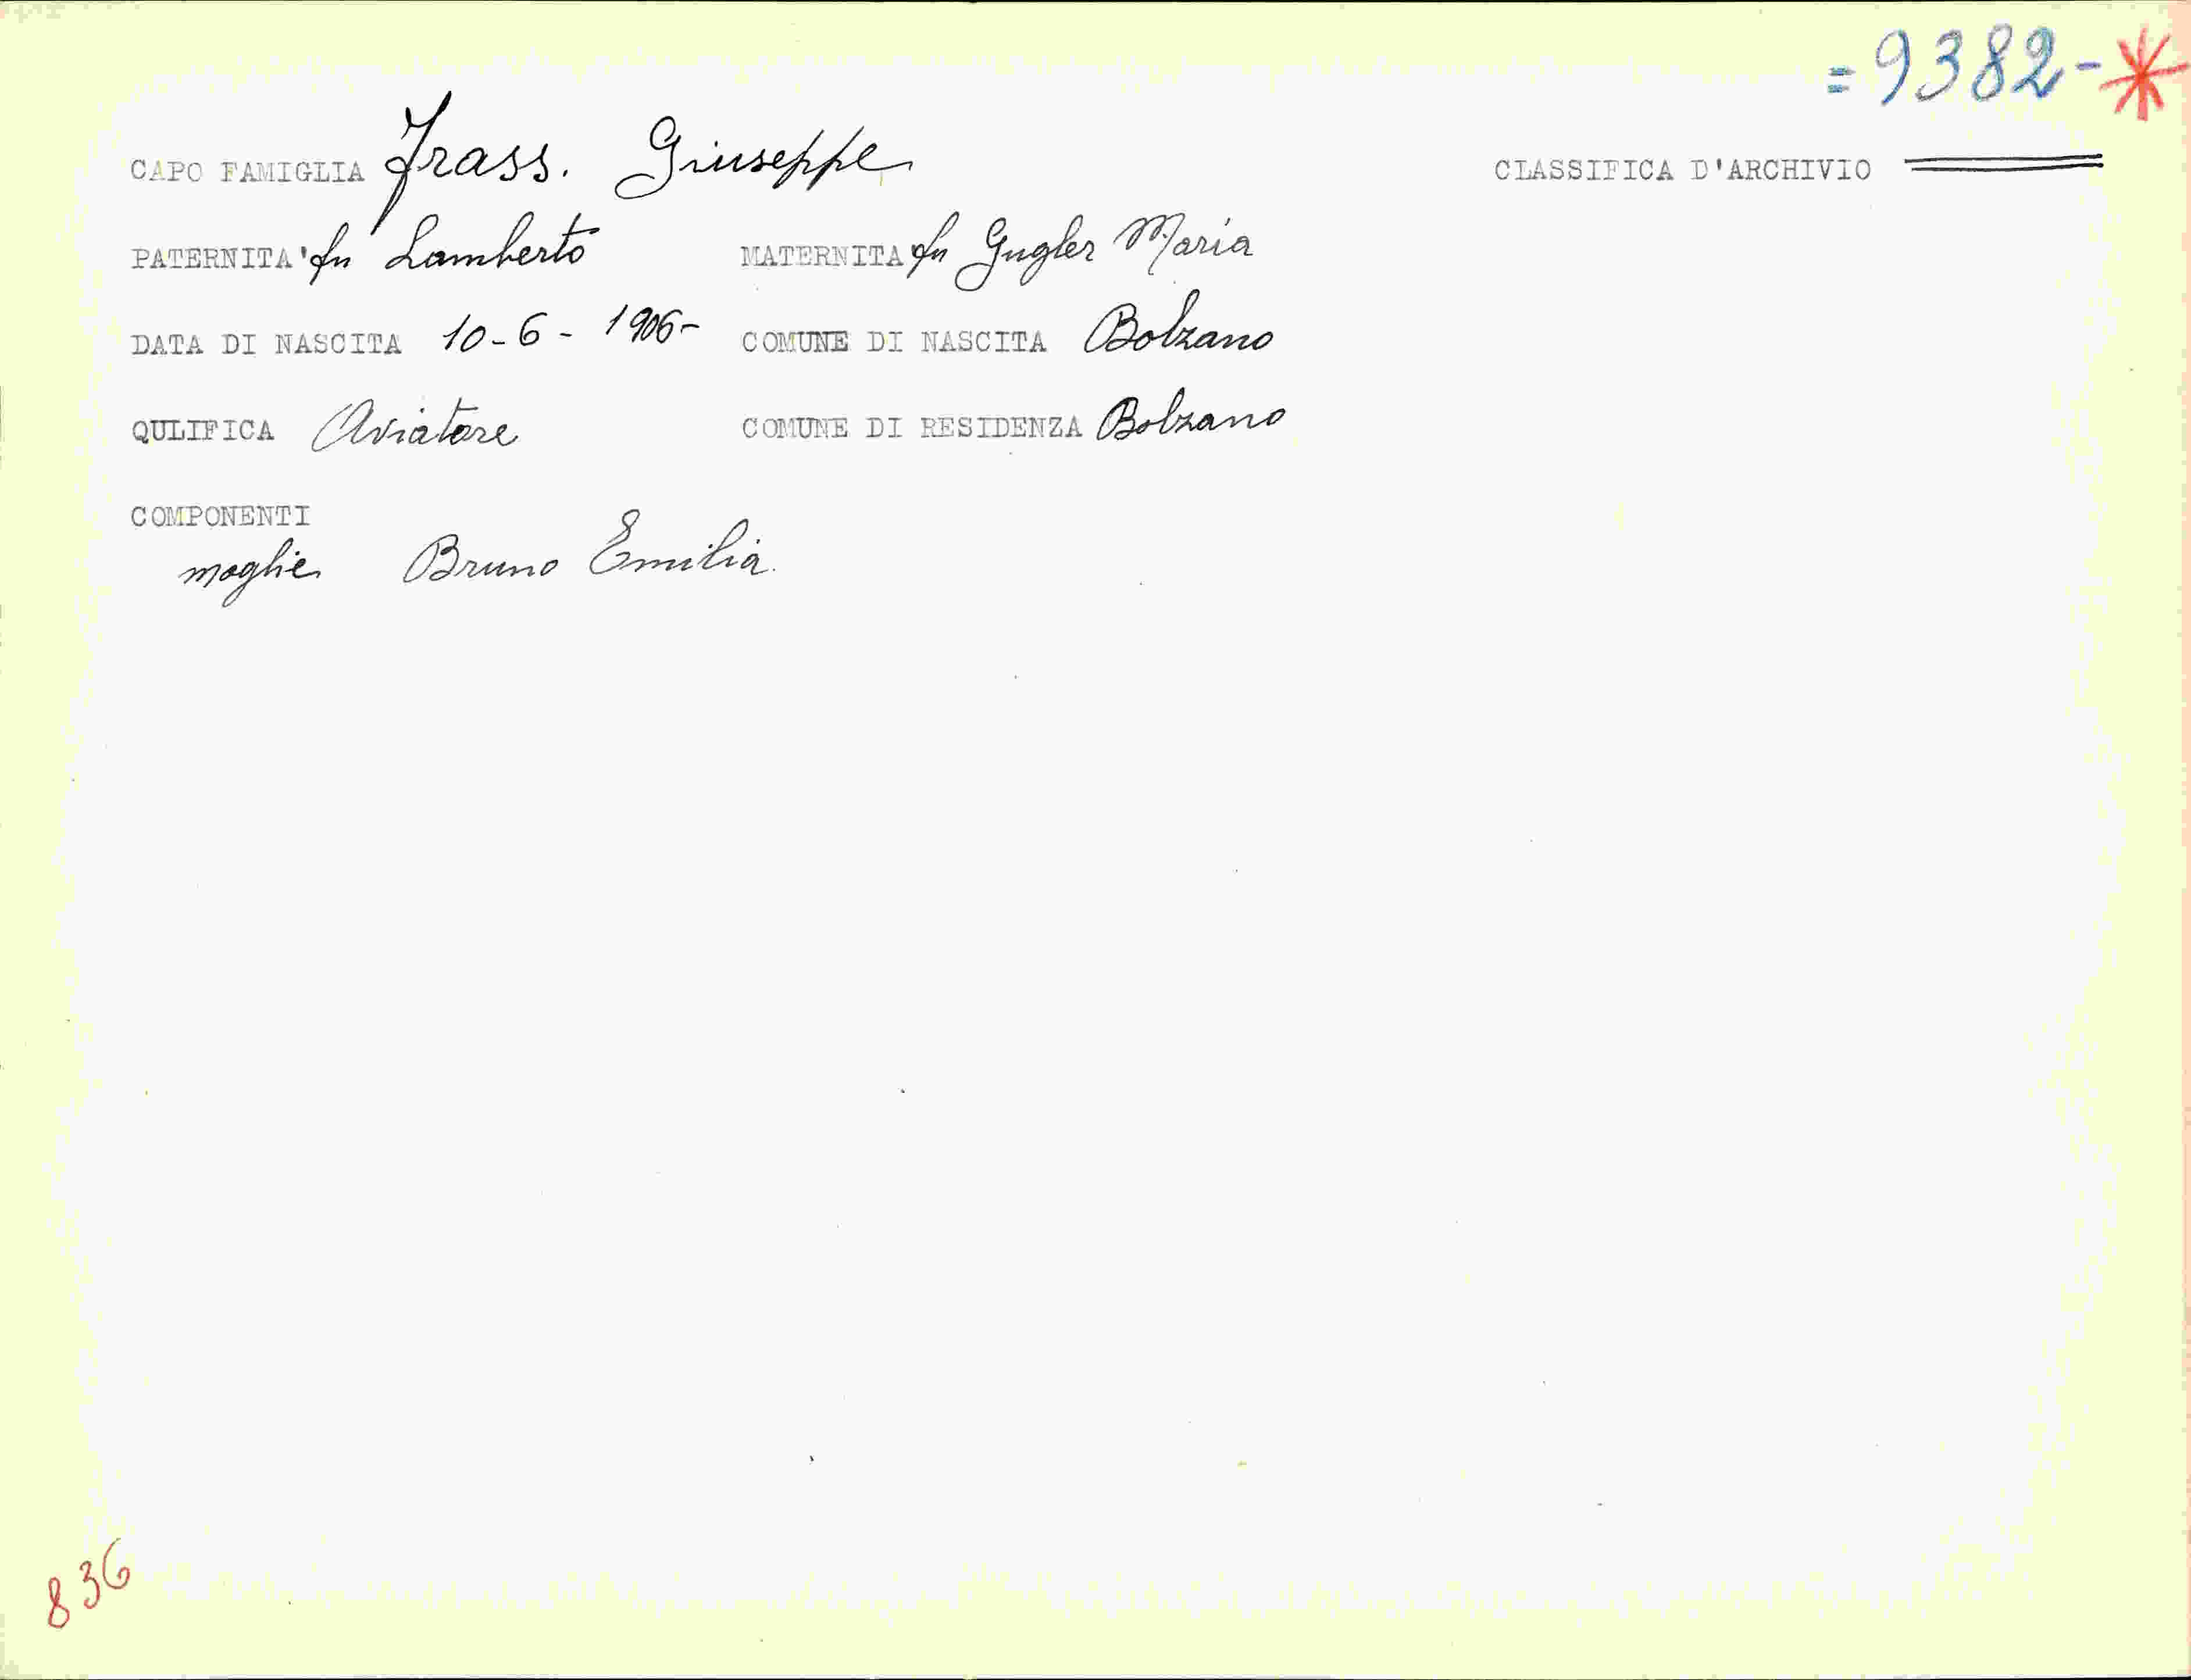 = 9382 - *
CAPO FAMIGLIA Frass. Giuseppe CLASSIFICA D'ARCHIVIO
PATERNITA' fu Lamberto MATERNITA fu Gugler Maria
DATA DI NASCITA 10-6-1906- COMUNE DI NASCITA Bolzano
QULIFICA Aviatore COMUNE DI RESIDENZA Bolzano
COMPONENTI
moglie Bruno Emilia.
836